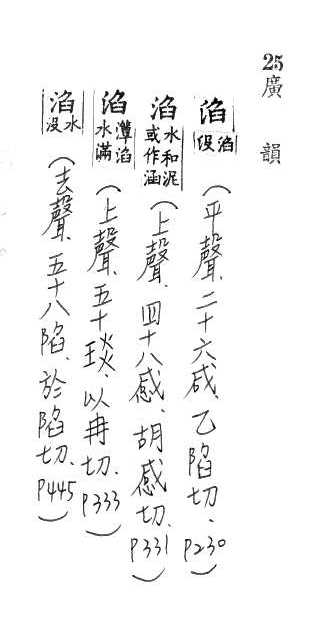 25廣韻
淊 淊没（平聲、二十六咸、乙陷切、P230）
淊 水和泥或作涵（上聲、四十八感、胡感切、P331）
淊 灛淊水滿（上聲、五十琰、以冉切、P333）
淊 水没（去聲、五十八陷、於陷切、P445）